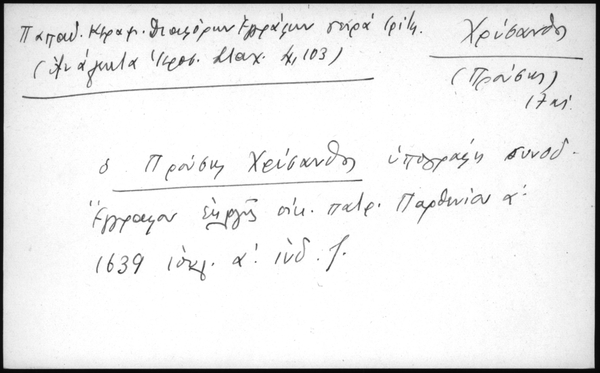 Παπαδ. Κεραμ. Διαφόρων Ἐγγράφων σειρὰ τρίτ.
(Ἀνάλεκτα Ἱεροσ. Σταχ. 4, 103)
Χρύσανθος
(Προύσης)
17 αἰ.
ὁ Προύσης Χρύσανθος ὑπογράφει συνοδ.
Ἔγγραφον ἐπὶ οἰκ. πατρ. Παρθενίου α΄
1639 ἰουλ. α΄ ἰνδ. ζ.